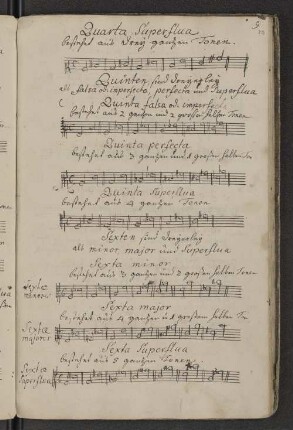 Quarta Superflua
bestehet aus dreÿ gantzen Tonen.
Quinten sind dreyerleÿ
als falsa od. imperfecta, perfecta und Superflua
Quinta falsa od. imperfecta
bestehet aus 2 gantzen und 2 großen halben Tonen
Quinta perfecta
bestehet aus 3 gantzen und 1 großen halben Ton
Quinta Superflua
bestehet aus 4 gantzen Tonen
Sexten sind dreyerleÿ
als minor major und Superflua
Sexta minor
bestehet aus 3 gantzen und 2 großen halben Tonen
Sexta minores
Sexta major
bestehet aus 4 gantzen u 1 großen halben Ton
Sexta majores
Sexta Superflua
bestehet aus 5 gantzen Tonen.
Sexta Superfluae